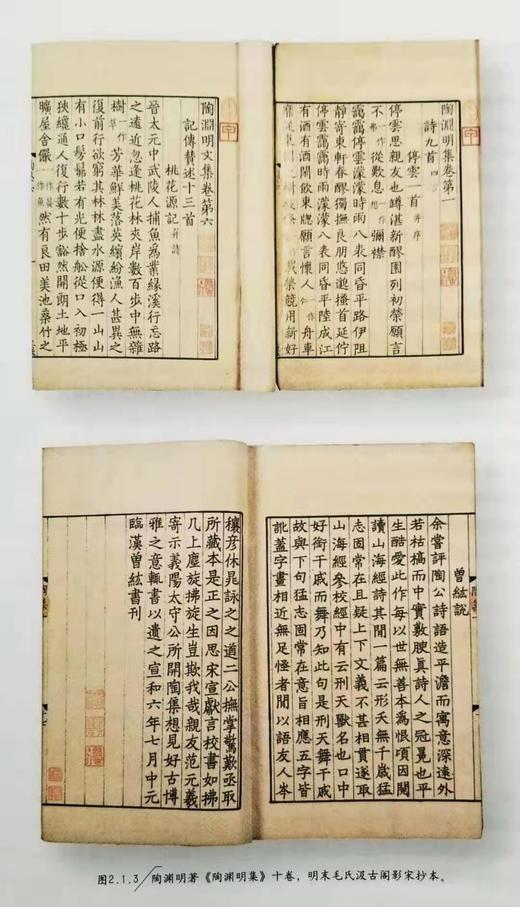 陶淵明集卷第一
詩九首
停雲一首 并序
停雲思親友也罇湛新醪園列初榮願言
不一作弗從歎息彌襟
靄靄停雲濛濛時雨八表同昏平路伊阻
靜寄東軒春醪獨撫良朋悠邈搔首延佇
停雲靄靄時雨濛濛八表同昏平陸成江
有酒有酒閒飲東牕願言懷人舟車
靡從東園之樹枝條榮競用新好
陶淵明文集卷第六
記傳贊述十三首
桃花源記并詩
晉太元中武陵人捕魚為業緣溪行忘路
之遠近忽逢桃花林夾岸數百步中無雜
樹一作草芳華鮮美落英繽紛漁人甚異之
復前行欲窮其林林盡水源便得一山山
有小口髣髴若有光便捨舩從口入初極
狹纔通人復行數十步豁然開朗土地平
曠屋舍儼然有良田美池桑竹之
曾紘說
余嘗評陶公詩語造平澹而寓意深遠外
若枯槁而中實敷腴真詩人之冠冕也平
生酷愛此作每以世無善本為恨頃因閱
讀山海經詩其間一篇云形夭無千歲猛
志固常在且疑上下文義不甚相貫遂取
山海經參校經中有云刑天獸名也口中
好銜干戚而舞乃知此句是刑天舞干戚
故與下句猛志固常在意旨相應五字皆
訛蓋字畫相近無足怪者間以語友人岑
穰彥休晁詠之之道二公撫掌驚歎亟取
所藏本是正之因思宋宣獻言校書如拂
几上塵旋拂旋生豈欺我哉親友范元羲
寄示義陽太守公所開陶集想見好古博
雅之意輒書以遺之宣和六年七月中元
臨漢曾紘書刊
图2.1.3 陶渊明著《陶渊明集》十卷，明末毛氏汲古阁影宋抄本。